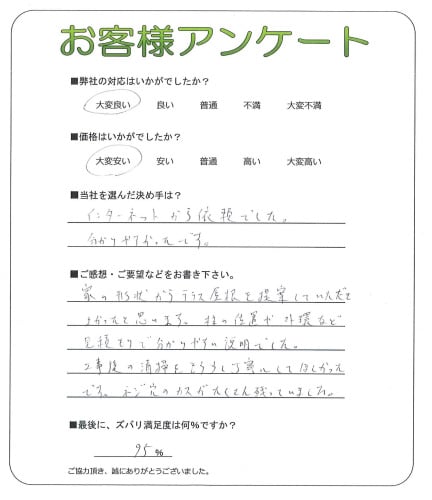 お客様アンケート
■弊社の対応はいかがでしたか？
大変良い 良い 普通 不満 大変不満
■価格はいかがでしたか？
大変安い 安い 普通 高い 大変高い
■当社を選んだ決め手は？
インターネットから依頼でした。
分かりやすかったです。
■ご感想・ご要望などをお書き下さい。
家の形状からテラス屋根を提案していただき
よかったと思います。柱の位置や外環など
見積もりで分かりやすい説明でした。
工事後の清掃をもう少し丁寧にしてほしかった
です。ネジ穴のカスがたくさん残っていました。
■最後に、ズバリ満足度は何％ですか？
95 ％
ご協力頂き、誠にありがとうございました。